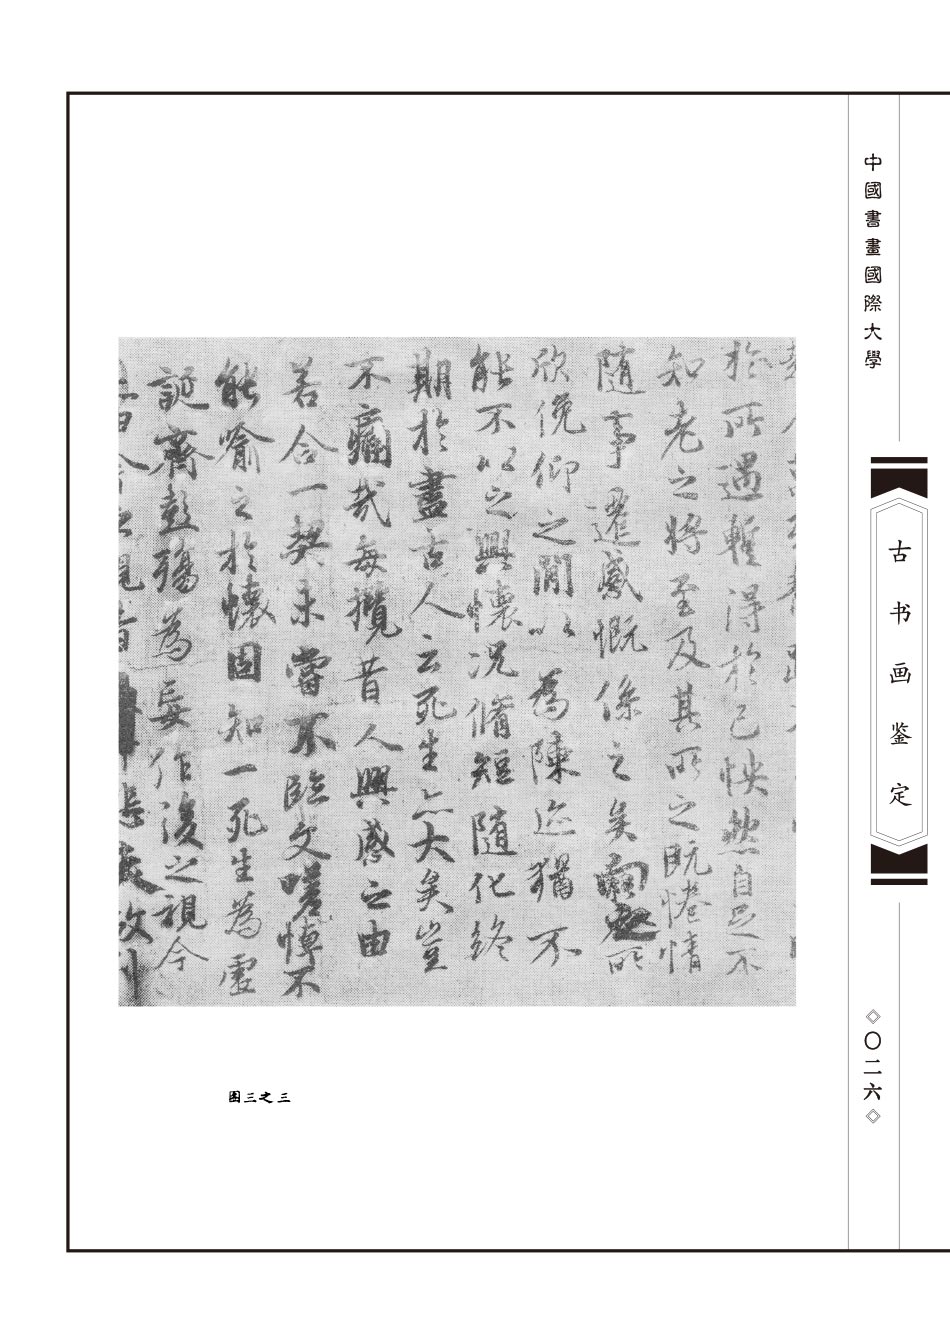 中國書畫國際大學
古书画鉴定
〇二六
於所遇蹔得於己怏然自足不
知老之將至及其所之既惓情
隨事遷感慨係之矣向之所
欣俛仰之閒以為陳迹猶不
能不以之興懷況脩短隨化終
期於盡古人云死生亦大矣豈
不痛哉每攬昔人興感之由
若合一契未嘗不臨文嗟悼不
能喻之於懷固知一死生為虛
誕齊彭殤為妄作後之視今
悲夫故列
图三之三